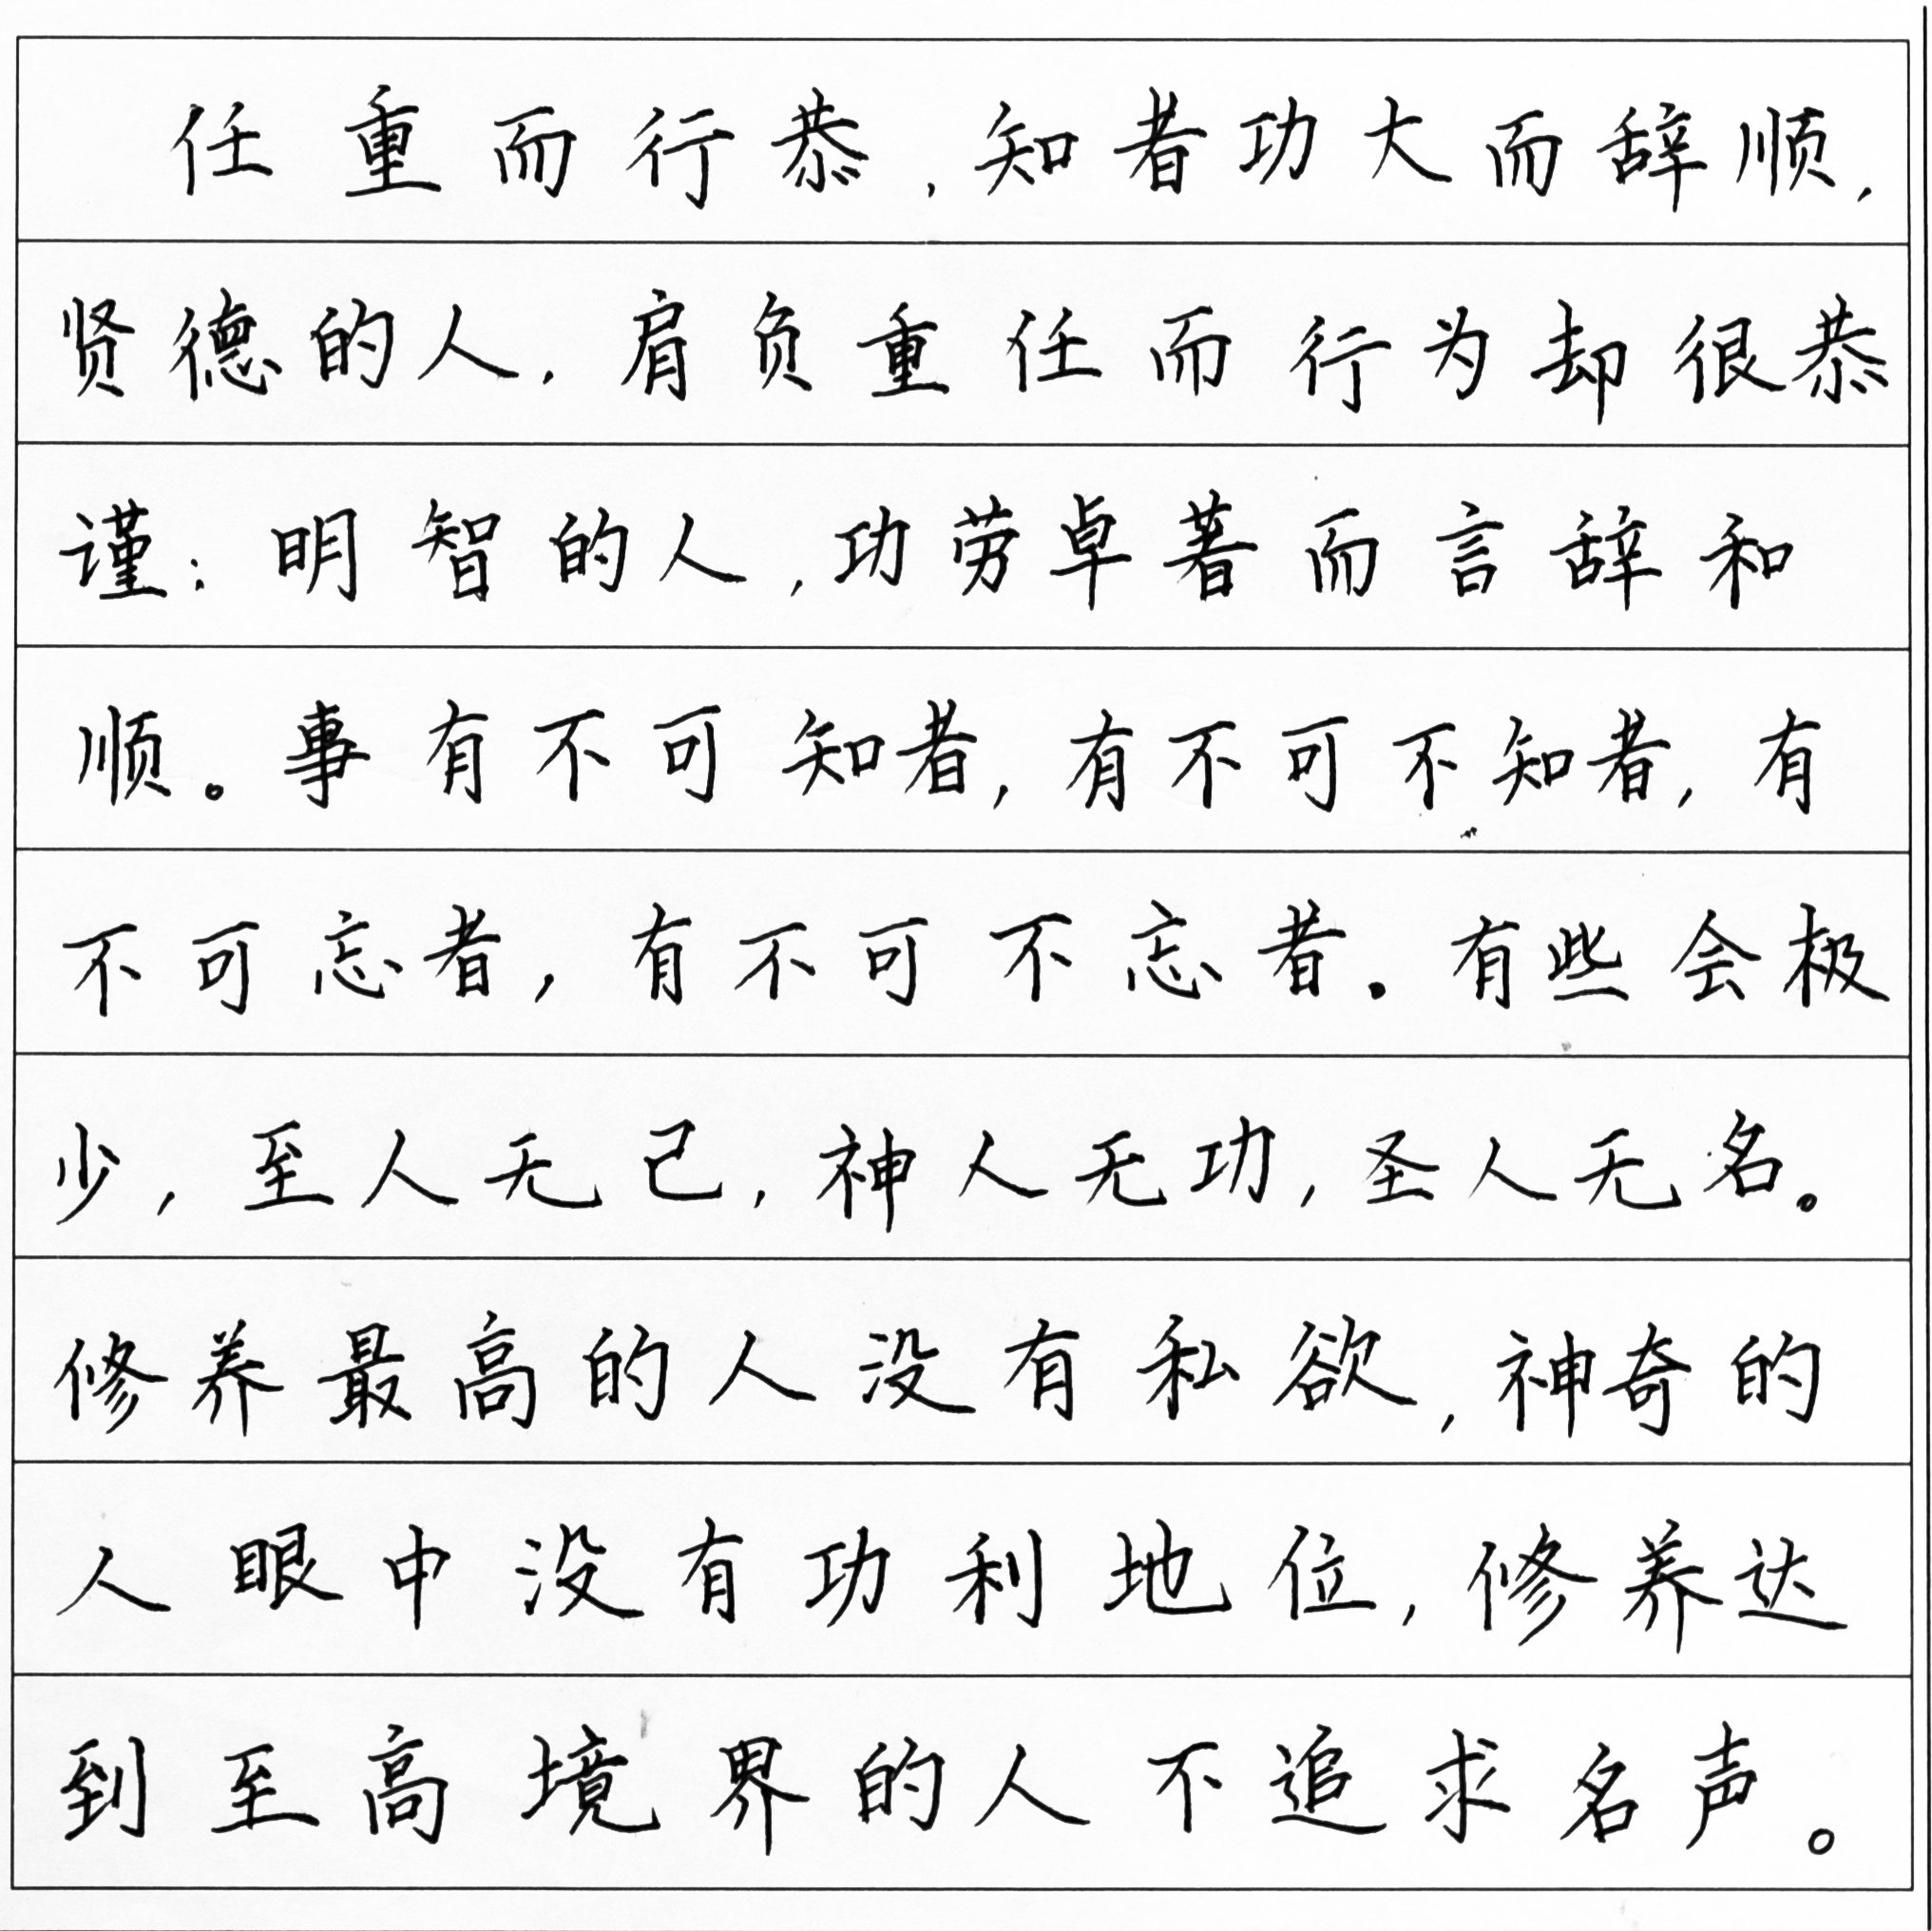 任重而行恭,知者功大而辞顺,
贤德的人,肩负重任而行为却很恭
谨:明智的人,功劳卓著而言辞和
顺。事有不可知者,有不可不知者,有
不可忘者,有不可不忘者。有些会极
少,至人无己,神人无功,圣人无名。
修养最高的人没有私欲,神奇的
人眼中没有功利地位,修养达
到至高境界的人不追求名声。